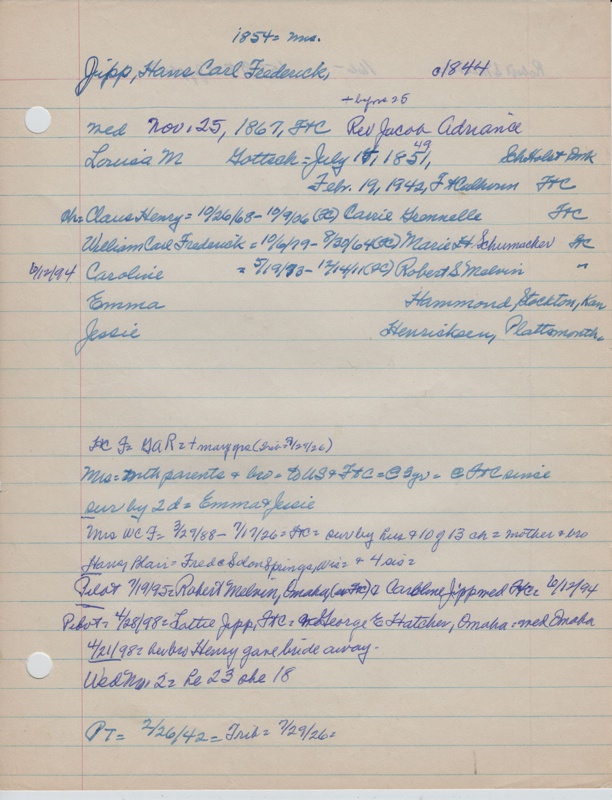 1854 = Mrs.
Jipp, Hans Carl Frederick, c1844
+ before 25
med Nov. 25, 1867, FtC Rev Jacob Adriance
Louisa M Gottsch = July 15, 1851, 49 Sch Holst Dmk
Febr. 19, 1942, Ft Calhoun FtC
ch = Claus Henry = 10/26/68 - 10/9/36 (FC) Carrie Gronnelle FtC
William Carl Frederick = 10/6/79 - 8/30/64 (FC) Marie H. Schumacher FtC
6/12/94 Caroline = 5/19/73 - 12/14/11 (FC) Robert S Melvin "
Emma Hammond, Stockton, Kan
Jessie Henricksen, Plattsmouth
HC F = GAR = + many yrs (Trib = 7/29/26)
Mrs = with parents & bro = to US & FtC = @ 3 yr = @ FtC since
sur by 2 d = Emma & Jessie
Mrs WC F = 3/27/88 - 7/17/26 = FtC = sur by hus & 10 of 13 ch = mother & bro
Harry Blair = Fred @ Solon Springs, Wis = & 4 sis =
Pilot 7/19/95 = Robert Melvin, Omaha & Caroline Jipp med FtC = 6/12/94
Pilot = 4/28/98 = Lottie Jipp, FtC = George E Hatcher, Omaha = med Omaha
4/21/98 = her bro Henry gave bride away.
Wed No. 2 = he 23 she 18
PT = 2/26/42 = Trib = 7/29/26 =